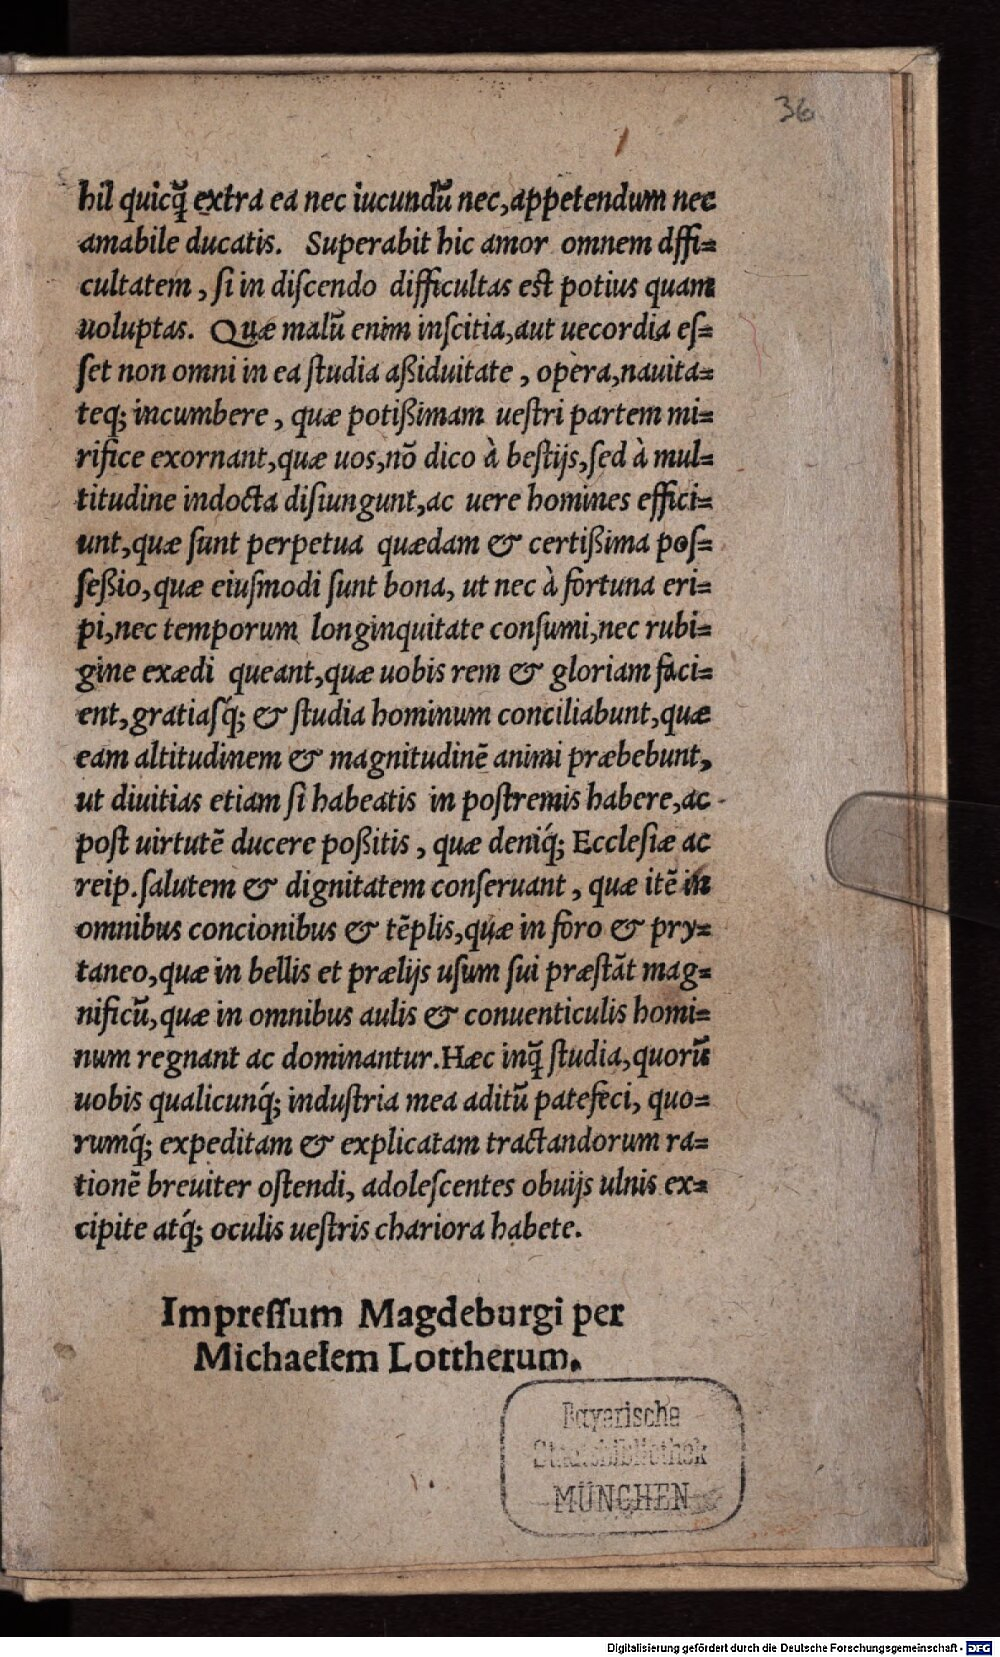 36
hil quicq̃ extra ea nec iucundũ nec,appetendum nec
amabile ducatis. Superabit hic amor omnem dffi=
cultatem, ſi in diſcendo difficultas eſt potius quam
uoluptas. Quæ malũ enim inſcitia,aut uecordia eſ=
ſet non omni in ea ſtudia aßiduitate, opera,nauita=
teq́; incumbere, quæ potißimam ueſtri partem mi=
rifice exornant,quæ uos,nõ dico à beſtijs,ſed à mul=
titudine indocta diſiungunt,ac uere homines effici=
unt,quæ ſunt perpetua quædam & certißima poſ=
ſeßio,quæ eiuſmodi ſunt bona, ut nec à fortuna eri=
pi,nec temporum longinquitate conſumi,nec rubi=
gine exædi queant,quæ uobis rem & gloriam faci=
ent,gratiaſq́; & ſtudia hominum conciliabunt,quæ
eam altitudinem & magnitudinẽ animi præbebunt,
ut diuitias etiam ſi habeatis in poſtremis habere,ac
poſt uirtutẽ ducere poßitis, quæ deniq́; Eccleſiæ ac
reip.ſalutem & dignitatem conſeruant, quæ itẽ in
omnibus concionibus & tẽplis,quæ in foro & pry=
taneo,quæ in bellis et prælijs uſum ſui præſtãt mag=
nificũ,quæ in omnibus aulis & conuenticulis homi=
num regnant ac dominantur.Hæc inq̃ ſtudia,quorũ
uobis qualicunq́; induſtria mea aditũ patefeci, quo=
rumq́; expeditam & explicatam tractandorum ra=
tionẽ breuiter oſtendi, adoleſcentes obuijs ulnis ex=
cipite atq́; oculis ueſtris chariora habete.
Impreſſum Magdeburgi per
Michaelem Lottherum.
Bayerische
Staatsbibliothek
MÜNCHEN
Digitalisierung gefördert durch die Deutsche Forschungsgemeinschaft - DFG